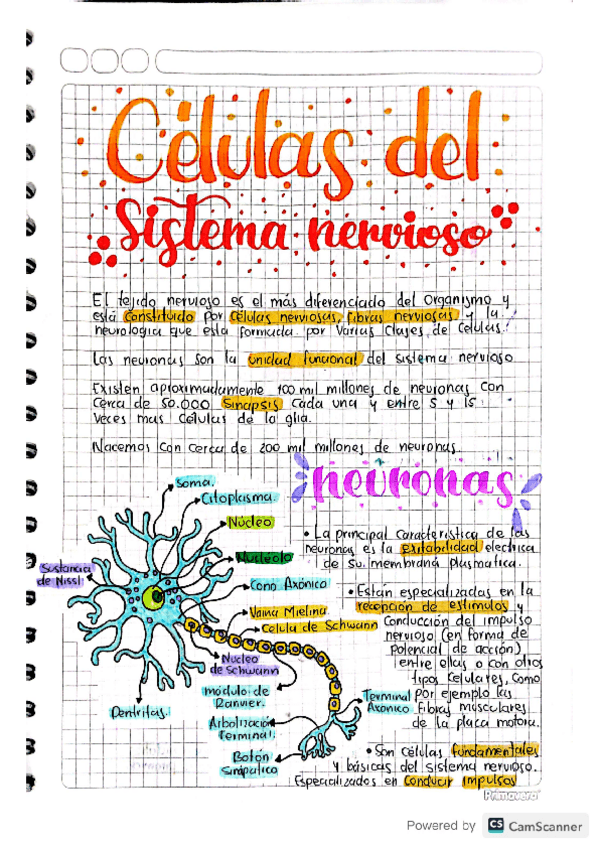 Células del
Sistema nervioso
El tejido nervioso es el más diferenciado del Organismo y
está Constituido por Células nerviosas, fibras nerviosas y la
neurologia que esta formada por Varias Clases de Celulas.
Las neuronas son la unidad funcional del sistema nervioso
Existen aproximadamente 100 mil millones de neuronas con
Cerca de 50.000 Sinapsis Cada una y entre 5 y 15
Veces mas Celulas de la glia.
Nacemos Con cerca de 200 mil millones de neuronas
neuronas
Soma.
Citoplasma.
Núcleo
Nucleolo
Sustancia
de Nissl
Cono Axónico
Vaina Mielina
Celula de Schwann
Nucleo
de Schwann
módulo de
Ranvier.
Arbolización
Terminal.
Botón
Sinápatico
Dentritas.
Terminal
Axonico
• La principal Caracteristica de las
neuronas es la exitabilidad electrica
de su membrana plasmatica.
• Están especializadas en la
recepción de estimulos y
Conducción del impulso
nervioso (en forma de
potencial de acción)
entre ellas o con otros
tipos Celulares, Como
por ejemplo las
fibras musculares
de la placa motora.
• Son Células fundamentales
y básicas del sistema nervioso.
Especializados en Conducir impulsos
Primavera
Powered by CS CamScanner